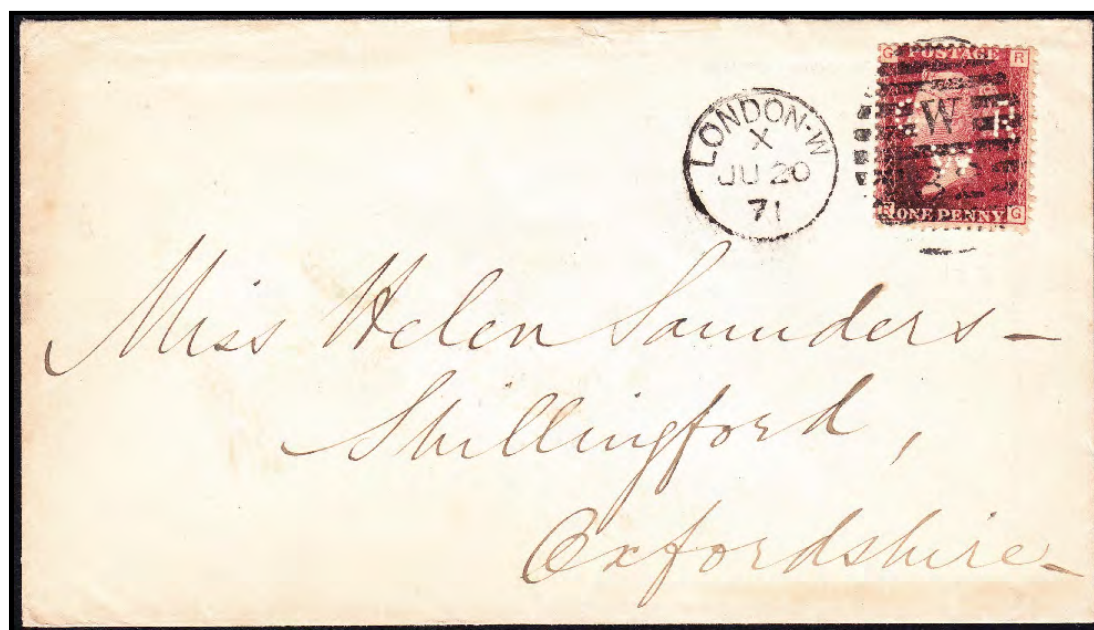 LONDON-W
X
JU 20
71
G POSTAGE R
W
R ONE PENNY G
Miss Helen Saunders –
Shillingford,
Oxfordshire –